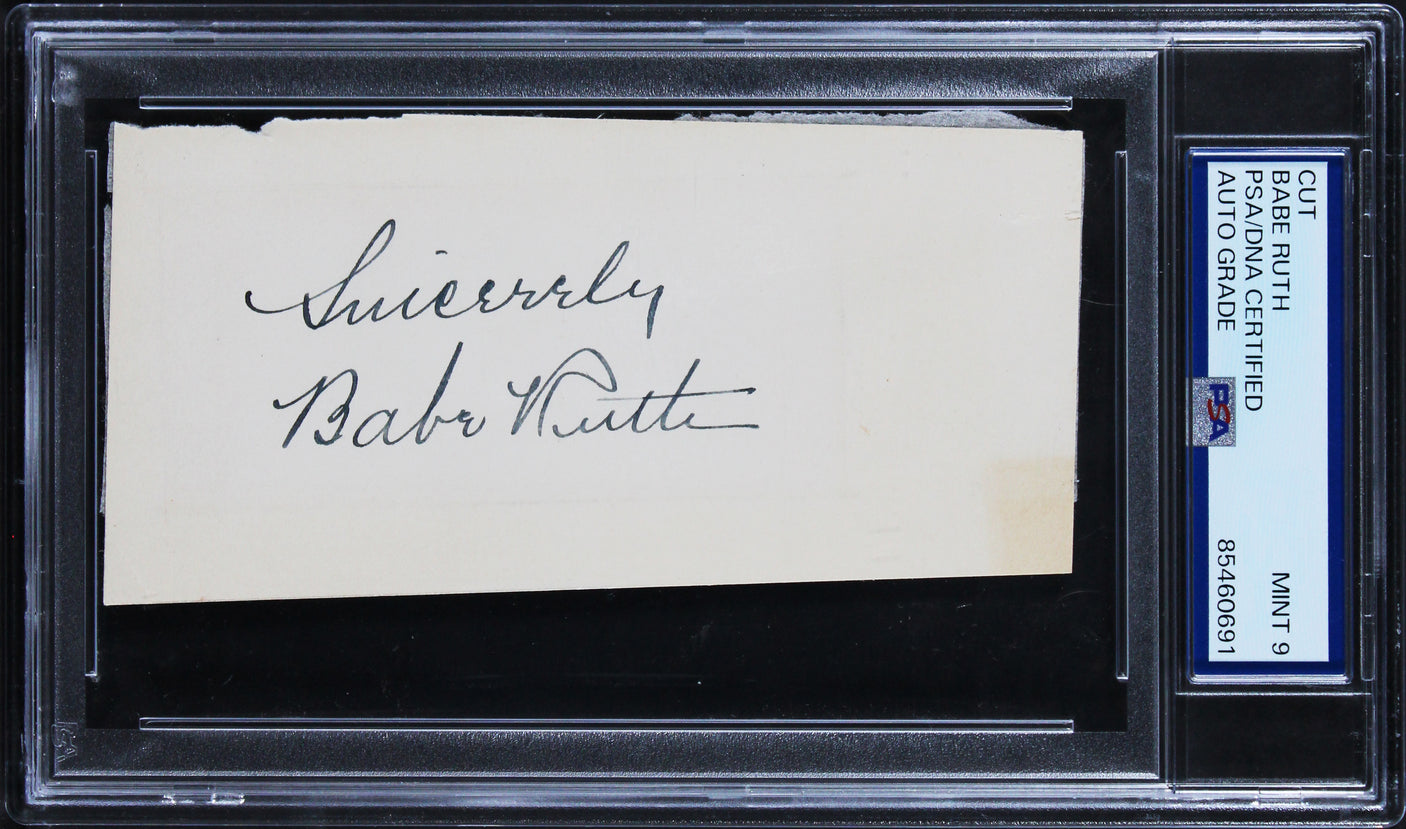 Sincerely
Babe Ruth
CUT
BABE RUTH MINT 9
PSA/DNA CERTIFIED
AUTO GRADE 85460691
PSA
PSA